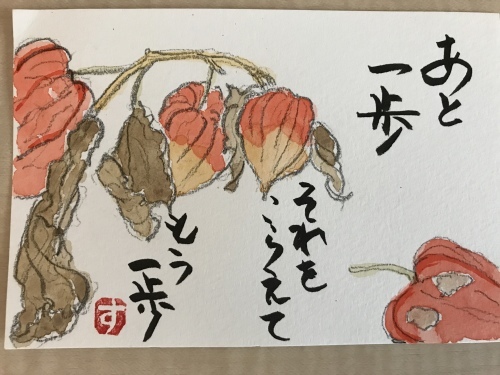 あと
一歩
それを
こらえて
もう
一歩
す